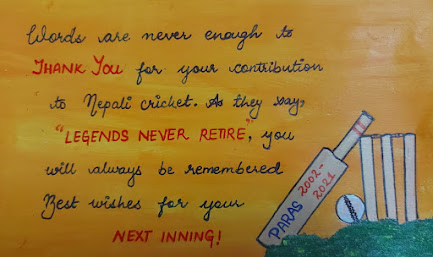 Words are never enough to
THANK YOU for your contribution
to Nepali cricket. As they say,
"LEGENDS NEVER RETIRE", you
will always be remembered
Best wishes for your
NEXT INNING!
PARAS 2002-
2021